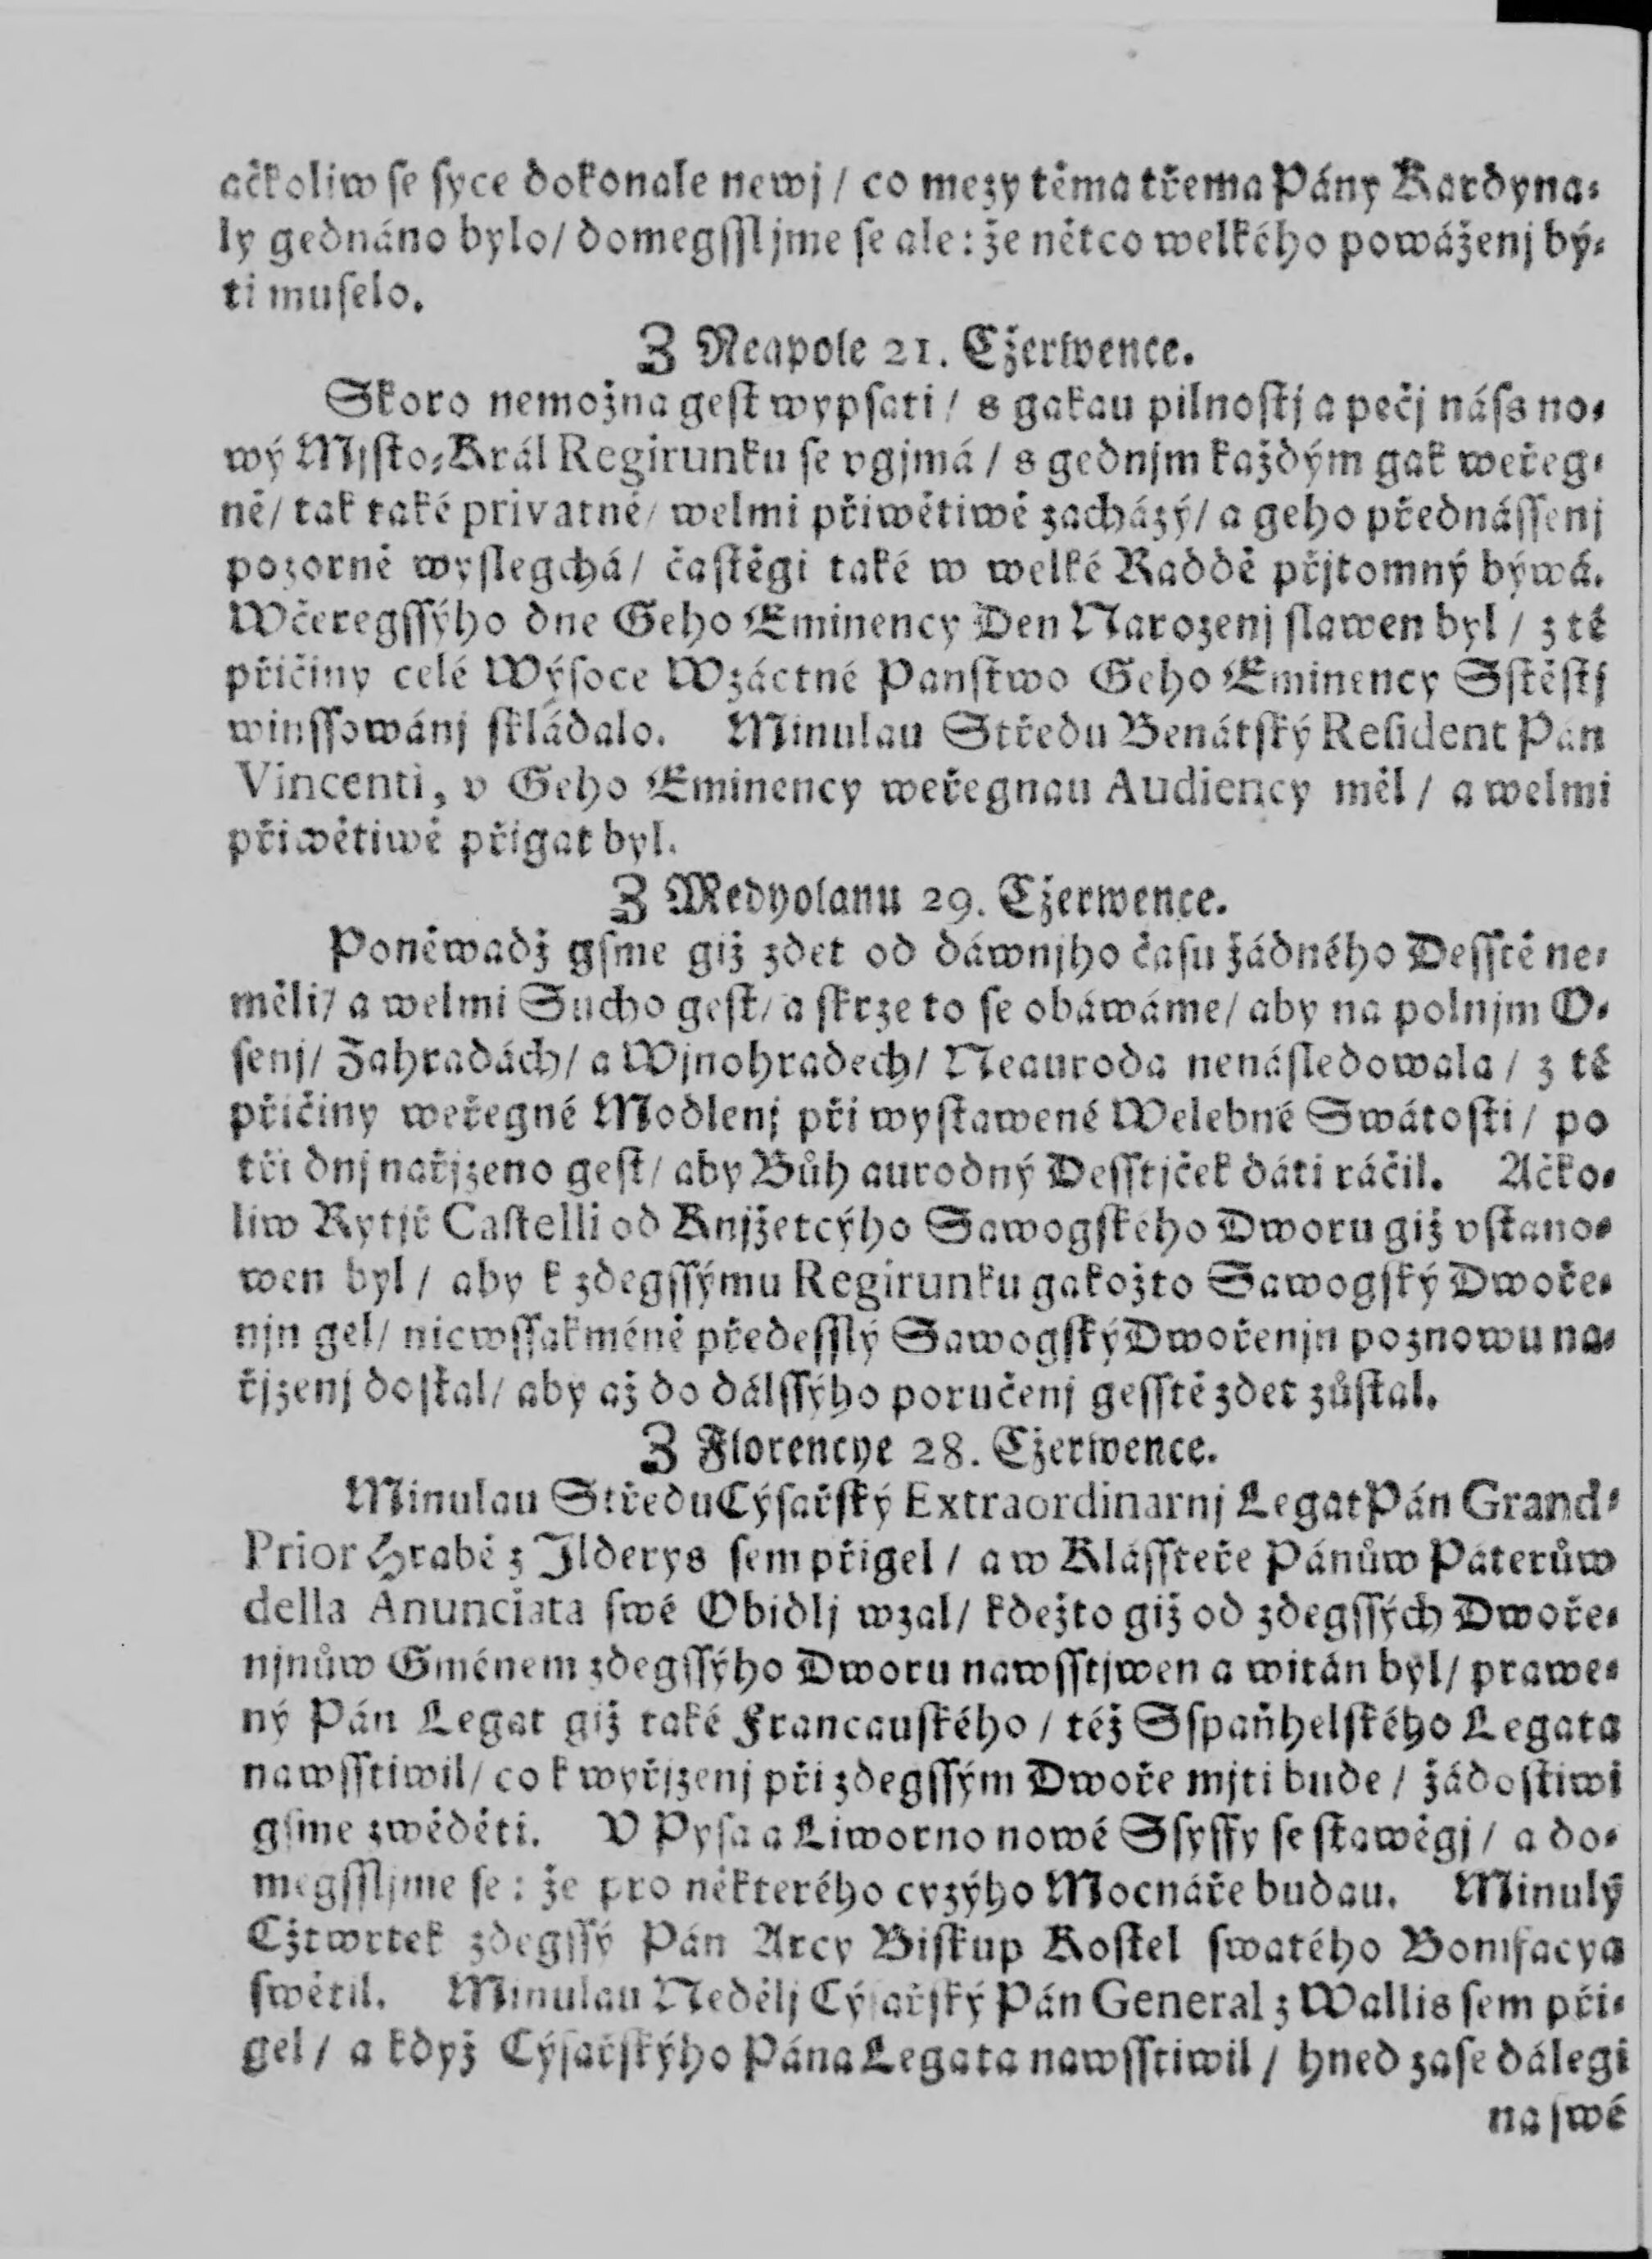 ačkoliw ſe ſyce dokonale newj / co mezy těma třema Pány Kardyna⸗
ly gednáno bylo / domegſſljme ſe ale : že nětco welkého powáženj bý⸗
ti muſelo.
Z Neapole 21. Cžerwence.
Skoro nemožna geſt wypſati / s gakau pilnoſtj a pečj náſs no⸗
wý Mjſto⸗Král Regirunku ſe vgjmá / s gednjm každým gak weřeg⸗
ně / tak také privatně / welmi přiwětiwě zacházý / a geho přednáſſenj
pozorně wyſlegchá / čaſtěgi také w welké Raddě přjtomný býwá.
Wčeregſſýho dne Geho Eminency Den Narozenj ſlawen byl / z té
přičiny celé Wýſoce Wzáctné Panſtwo Geho Eminency Sſtěſtj
winſſowánj ſkládalo. Minulau Středu Benátſký Reſident Pán
Vincenti, v Geho Eminency weřegnau Audiency měl / a welmi
přiwětiwě přigat byl.
Z Medyolanu 29. Cžerwence.
Poněwadž gſme giž zdet od dáwnjho čaſu žádného Deſſtě ne⸗
měli / a welmi Sucho geſt / a ſkrze to ſe obáwáme / aby na polnjm O⸗
ſenj / Zahradách / a Wjnohradech / Neauroda nenáſledowala / z té
přičiny weřegné Modlenj při wyſtawené Welebné Swátoſti / po
tři dnj nařjzeno geſt / aby Bůh aurodný Deſſtjček dáti ráčil. Ačko⸗
liw Rytjř Caſtelli od Knjžetcýho Sawogſkého Dworu giž vſtano⸗
wen byl / aby k zdegſſýmu Regirunku gakožto Sawogſký Dwoře⸗
njn gel / nicwſſakméně předeſſlý Sawogſký Dwořenjn poznowu na⸗
řjzenj doſtal / aby až do dálſſýho poručenj geſſtě zdet zůſtal.
Z Florencye 28. Cžerwence.
Minulau Středu Cýſařſký Extraordinarnj Legat Pán Grand⸗
Prior Hrabě z Ilderys ſem přigel / a w Kláſſteře Pánůw Páterůw
della Anunciata ſwé Obidlj wzal / kdežto giž od zdegſſých Dwoře⸗
njnůw Gménem zdegſſýho Dworu nawſſtjwen a witán byl / prawe⸗
ný Pán Legat giž také Francauſkého / též Sſpaňhelſkého Legata
nawſſtiwil / co k wyřjzenj při zdegſſým Dwoře mjti bude / žádoſtiwi
gſme zwěděti. V Pyſa a Liworno nowé Sſyffy ſe ſtawěgj / a do⸗
megſſljme ſe : že pro některého cyzýho Mocnáře budau. Minulý
Cžtwrtek zdegſſý Pán Arcy Biſkup Koſtel ſwatého Bonifacya
ſwětil. Minulau Nedělj Cýſařſký Pán General z Wallis ſem při⸗
gel / a když Cýſařſkýho Pána Legata nawſſtiwil / hned zaſe dálegi
na ſwé